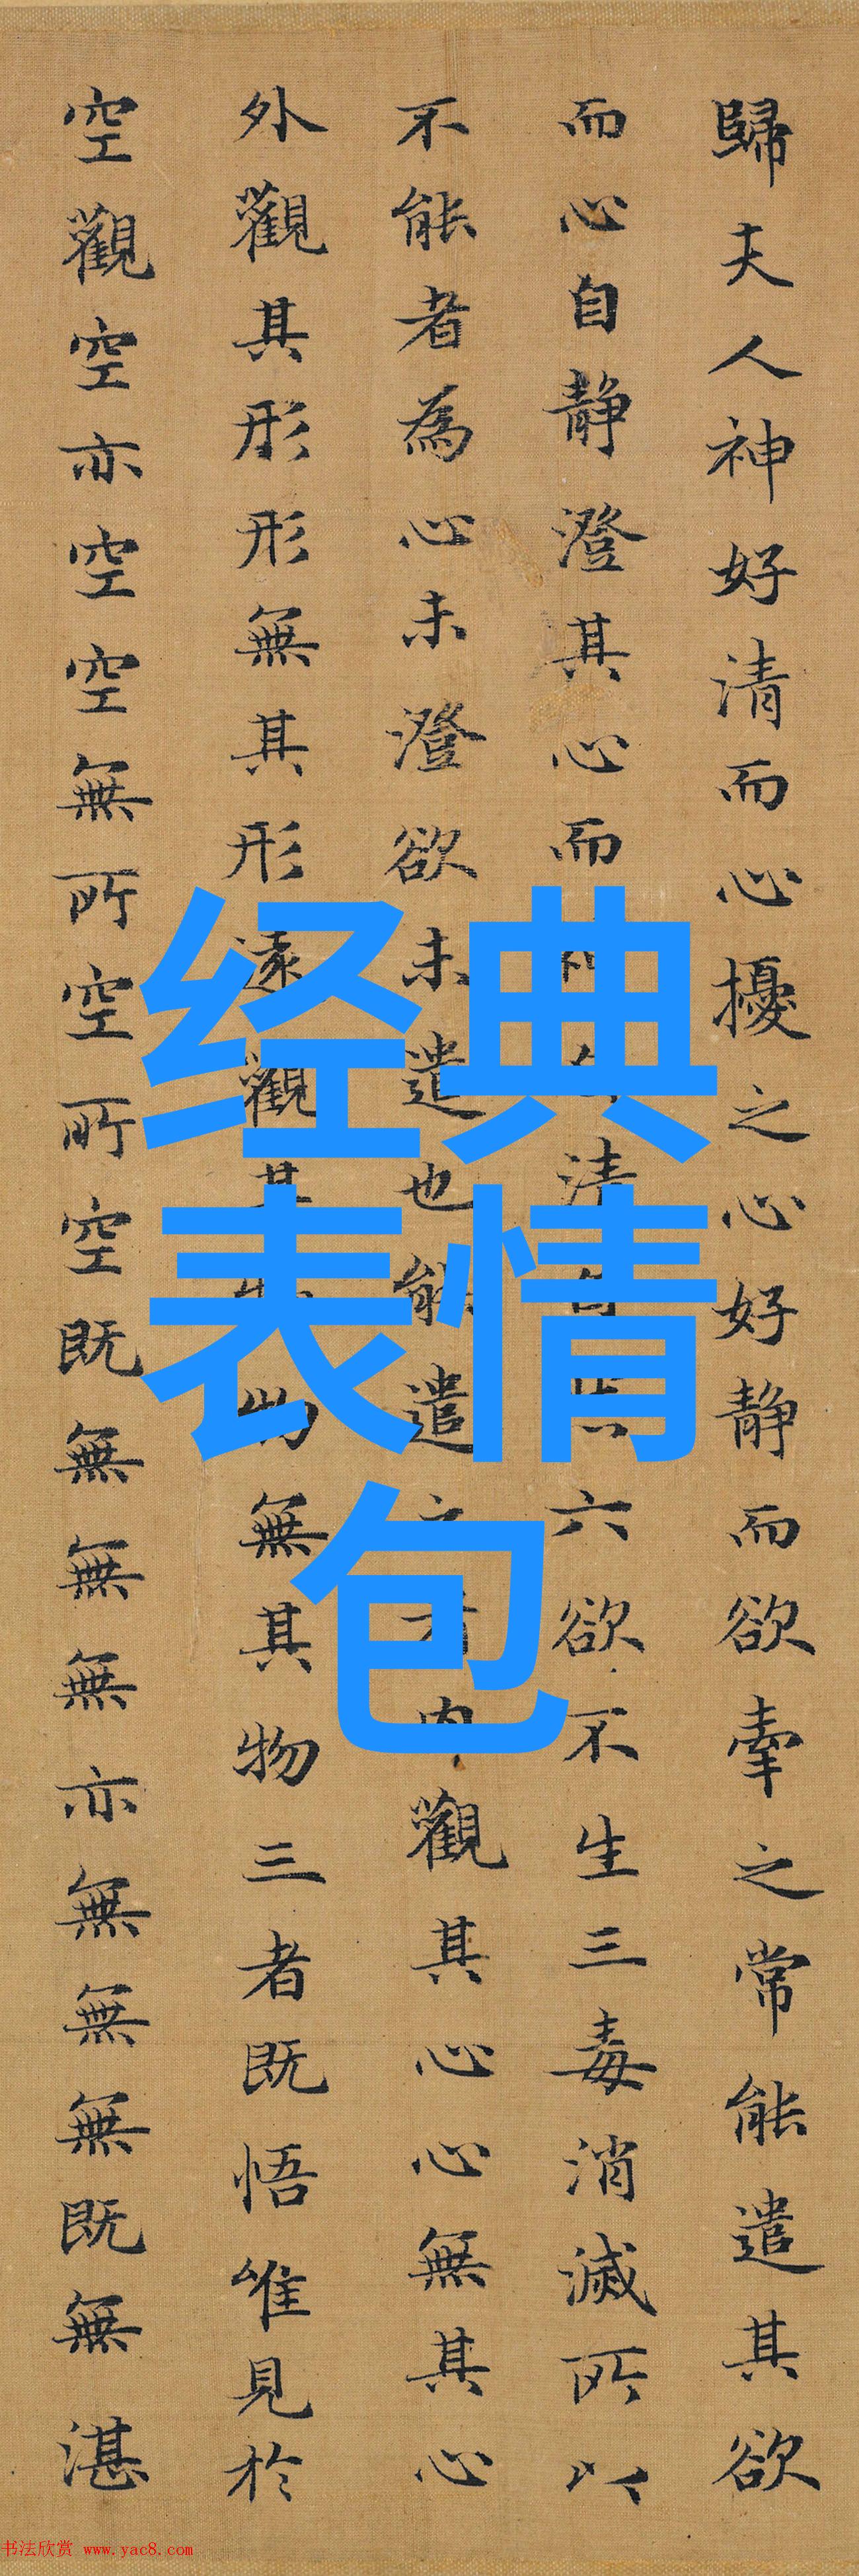 歸夫人神好清而心擾之心好静而欲牽之常能遣其欲
而心自静澄其心而清六欲不生三毒消滅所以
不能者為心未澄欲未遣也能遣者内觀其心心無其心
外觀其形形無其形遠觀其物無其物三者既悟唯見於
空觀空亦空空無所空所空既無無無亦無無無既無湛
经典
表情
包
书法欣赏 www.yac8.com